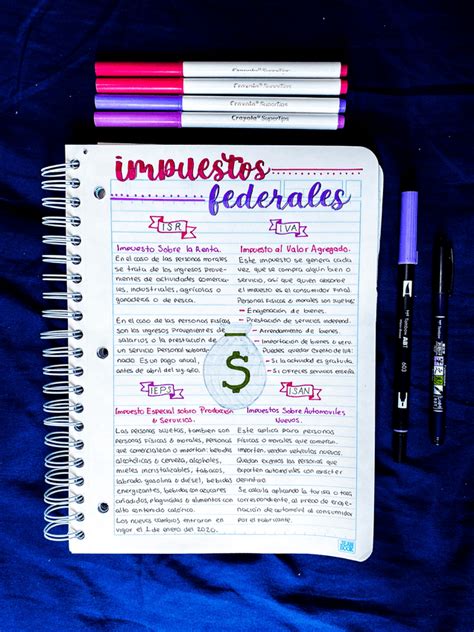 Crayola® Supertips
Crayola® Supertips
Crayola® Supertips
Crayola® Supertips
impuestos
federales
ISR
Impuesto Sobre la Renta.
En el caso de las personas morales
se trata de los ingresos prove-
nientes de actividades comercia-
les, industriales, agrícolas o
ganaderas o de pesca.
En el caso de las Personas Físicas
son los ingresos Provenientes de
salarios o la prestación de
un servicio Personal
dad. Es un pago anual,
antes de abril del sig. año.
IVA
Impuesto al Valor Agregado.
Este impuesto se genera cada
vez que se compra algún bien o
servicio, así que quien absorbe
el impuesto es el consumidor Final.
Personas Físicas o morales son sujetas:
- Enagenación de bienes.
- Prestación de servicios independ.
- Arrendamiento de bienes.
- Importación de bienes o serv.
Puedes quedar Exento de IVA:
- Si la actividad es gratuita.
- Si ofreces servicios
$
IEPS
Impuesto Especial sobre Producción
& Servicios.
Las personas sujetas, también son
personas físicas & morales, porque
que comercialean o importan: bebidas
alcohólicas & cerveza, alcoholes,
mieles incristalizables, tabacos,
labrado, gasolina & diesel, bebidas
energizantes, bebidas con azúcares
añadidos, plaguicidas & alimentos con
alto contenido calórico.
Los nuevos cambios entraran en
vigor el 1 de enero del 2020.
ISAN
Impuestos Sobre Automóviles
Nuevos.
Este aplica para personas
Físicas o morales que compran,
importen, vendan vehículos nuevos.
Quedan exentos las personas que
exporten automóviles con carácter
definitivo.
Se calcula aplicando la tarifa o tasa,
correspondiente, al precio de enage-
nación de automóvil al consumidor
por el Fabricante.
ABT
603